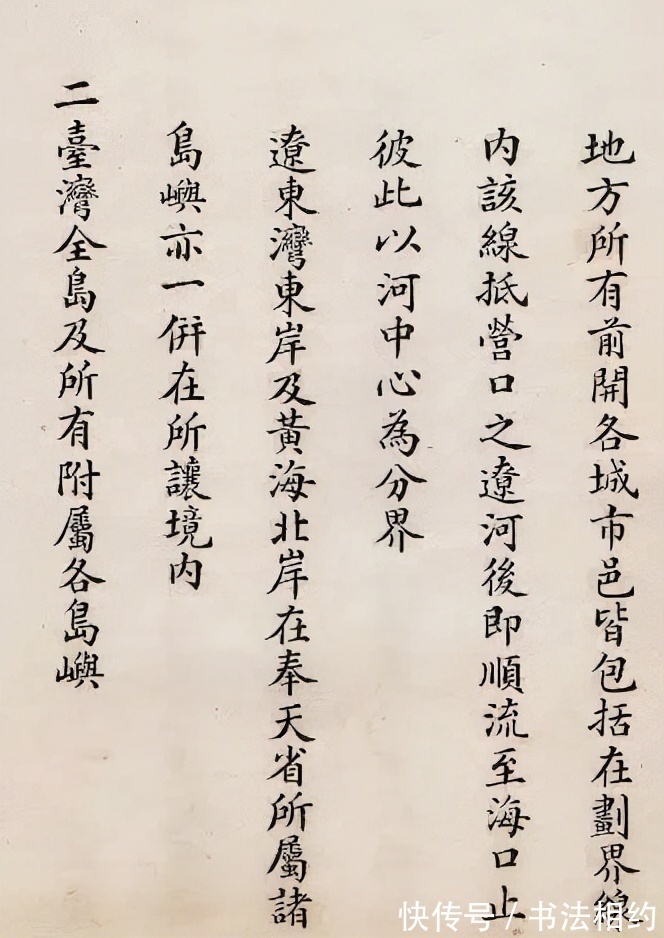 地方所有前開各城市邑皆包括在劃界線
内該線抵營口之遼河後即順流至海口止
彼此以河中心為分界
遼東灣東岸及黃海北岸在奉天省所屬諸
島嶼亦一併在所讓境内
二臺灣全島及所有附屬各島嶼
快传号/书法相约